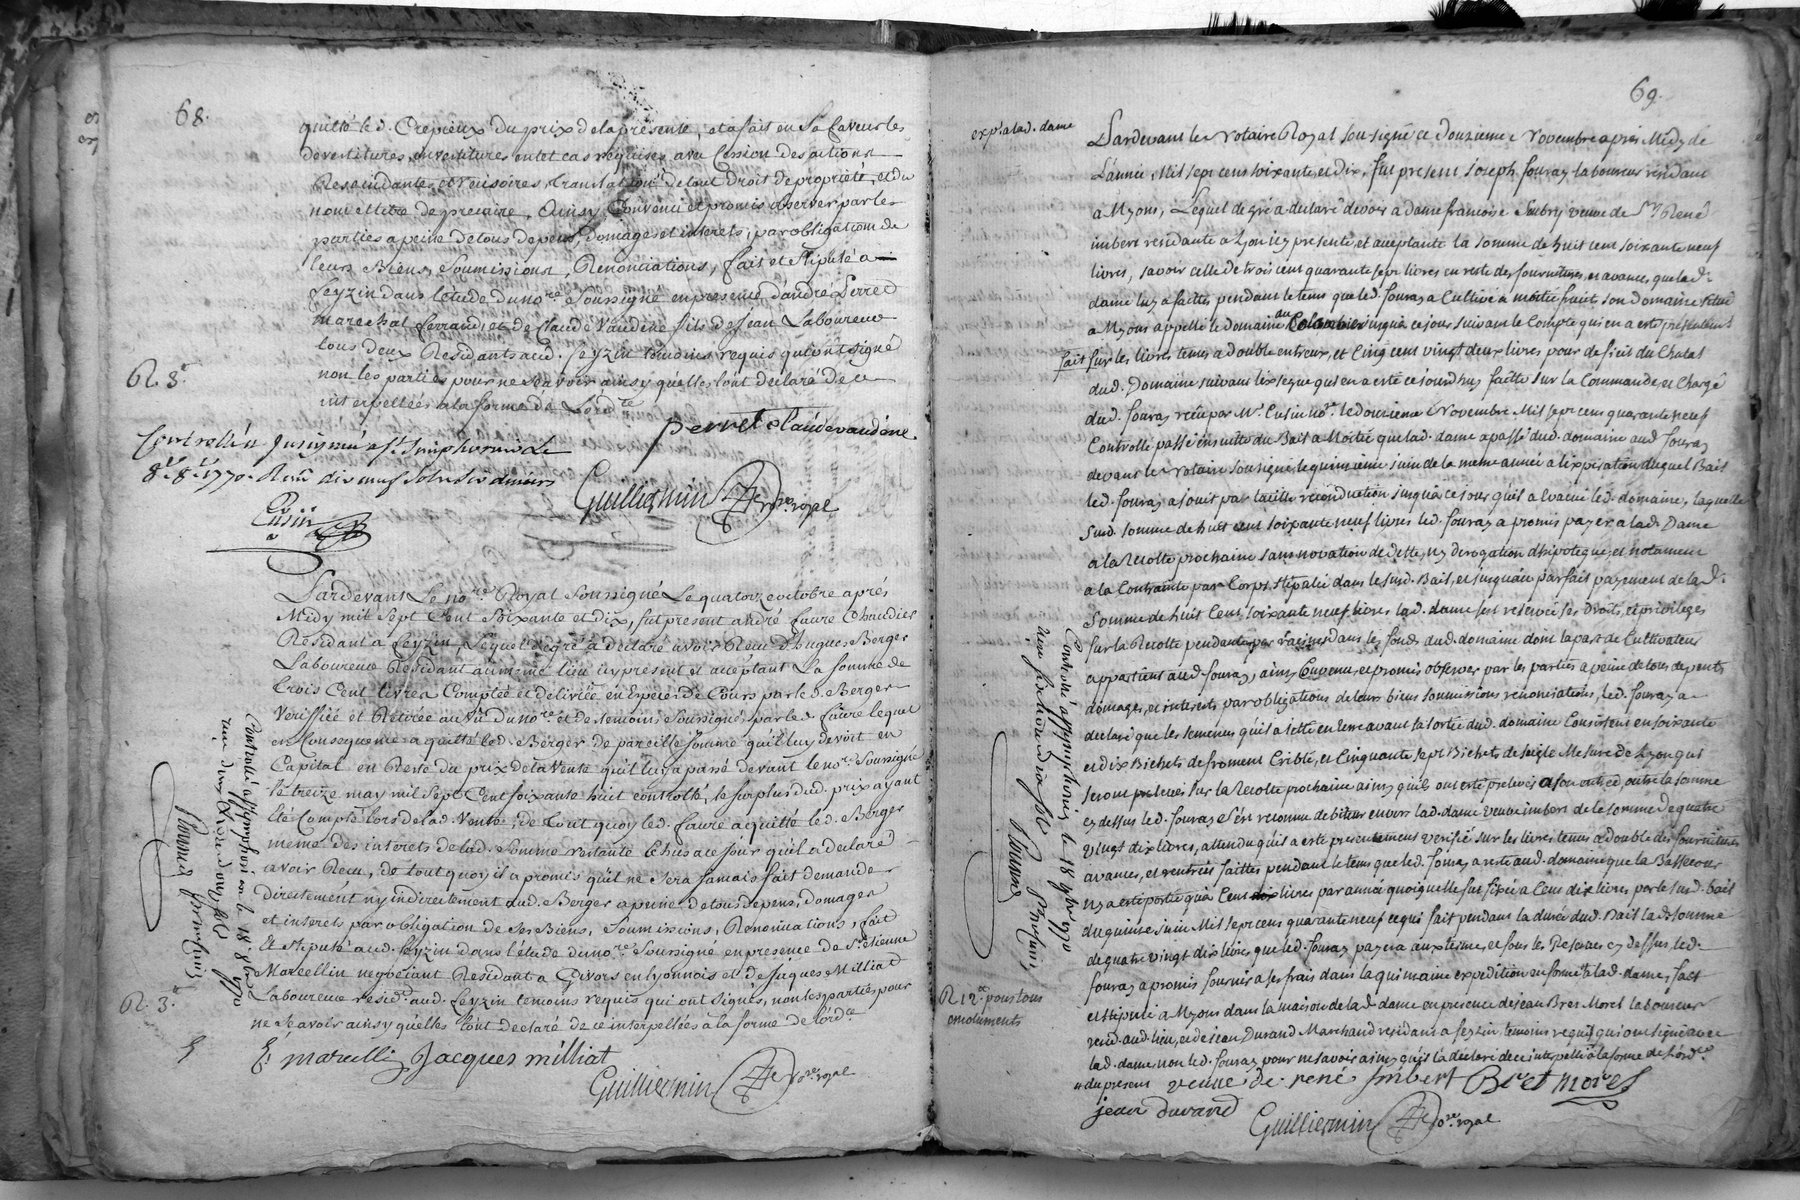 68.
quitté led. Crepieux du prix de la presente, et a fait en sa faveur les
devestitures, investitures en tel cas requises avec Cession des actions
Rescindantes et rescisoires, translation de tout droit de proprieté, et du
nom et titre de precaire, Ainsy Convenu et promis observer par les
parties a peine de tous depens, domages et interets, par obligation de
leurs Biens, Soumissions, Renonciations, fait et Stipulé a
feyzin dans l'étude du no.re Soussigné en presence d'andré Perret
marechal ferrand, et de Claude Vaudene fils de Jean Laboureur
tous deux Residants aud. feyzin temoins requis qui ont signé
non les parties pour ne scavoir ainsy qu'elles l'ont declaré de ce
interpellées a la forme de l'ord.ce
R. 3.lt
perret claudevaudene
Controllé a St Simphorien le
8.e 8.bre 1770. Reçu dix neuf sols six deniers
Guilliermin no.re royal
Cusin
Pardevant Le no.re Royal Soussigné Le quatorze octobre aprés
Midy mil Sept Cent Soixante et dix, fut present andré faure Chaudier
Résidant a feyzin, Lequel de gré a declaré avoir Recu d'hugues Berger
Laboureur Residant au même lieu cy present et acceptant La somme de
trois Cent livres Comptée et delivrée en Especes de Cours par led. Berger
Veriffiée et Retirée au vu du no.re et des temoins Soussignés par led. faure lequel
en Consequence a quitté led. Berger de pareille somme qu'il luy devoit en
Capital en Reste du prix de la Vente qu'il luy a passé devant le no.re Soussigné
le treize may mil Sept Cent Soixante huit controllé, le surplus dud. prix ayant
été Compté lors de lad. Vente, de tout quoy led. faure a quitté led. Berger
même des interets de lad. somme restante Echus a ce jour qu'il a declaré
avoir Recu, de tout quoy il a promis qu'il ne Sera Jamais fait demande
directement ny indirectement aud. Berger a peine de tous depens, domages
et interets par obligation de ses Biens, Soumissions, Renonciations, fait
Et Stipulé aud. feyzin dans l'étude du no.re Soussigné en presence de S.r Etienne
Marcellin negociant Residant a Givors en lyonnois et de Jaques Milliat
Laboureur resid.t aud. feyzin temoins requis qui ont signés, non les parties pour
ne Scavoir ainsy qu'elles l'ont declaré de ce interpellées a la forme de l'ord.ce
Controllé a St Symphorien le 18. 8bre 1770
R. 3.lt
E.t marcellin Jacques milliat
Guilliermin no.re royal
69.
exp.é a lad. dame
Pardevant le Notaire Royal Soussigné ce douzieme Novembre aprés Midy de
L'année, Mil sept cent soixante et dix, fut present joseph fouraz laboureur residant
a Myons, Lequel de gré a declaré devoir a dame francoise Saubry veuve de S.r René
imbert residante a Lyon icy presente et acceptante la somme de huit cent soixante neuf
livres, savoir celle de trois cent quarante sept livres en reste des fournitures, et avances, que lad.
dame luy a faittes pendant le tems que led. fouraz a Cultivé a moitié fruit son Domaine situé
a Myons appellé le domaine du Colombier jusqu'a ce jour suivant le Compte qui en a esté presentement
fait sur les livres tenus a double entreux, et Cinq cent vingt deux livres pour deficit du Chatal
dud. Domaine suivant l'exegue qui en a esté cejourdhuy faitte sur la Commande et Chargé
dud. fouraz reçu par M.e Cusin no.re le douzieme Novembre Mil sept cent quarante neuf
Controllé passé ensuitte du Bail a Moitié que lad. dame a passé dud. domaine aud. fouraz
devant le Notaire soussigné, le quinzieme juin de la meme année a l'expiration duquel Bail
led. fouraz a jouit par tacitte réconduction jusqu'a ce jour qu'il a evacué led. domaine, laquelle
susd. somme de huit cent soixante neuf livres led. fouraz a promis payer a lad. Dame
a la Recolte prochaine sans novation de dette, ny derogation d'hipoteque, et notament
a la Contrainte par Corps stipulée dans le susd. Bail, et jusqu'au parfait payement de lad.
somme de huit Cent soixante neuf livres lad. dame s'est reservée ses droits, et privileges
sur la Recolte pendante par racines dans les fonds dud. domaine dont la part de Cultivateur
appartient aud. fouraz, ainsy Convenu, et promis observer par les parties a peine de tous depents
domages, et interets par obligations de leurs biens soumissions renonciations, led. fouraz a
declaré que les semences qu'il a jetté en terre avant sa sortie dud. domaine Consistent en soixante
et dix Bichets de froment Criblé, et Cinquante sept Bichets de seigle Mesure de Lyon qui
seront prelevés sur la Recolte prochaine ainsy qu'ils ont esté prelevés
cy dessus led. fouraz s'est reconnu debiteur envers lad. dame veuve imbert de la somme de quatre
vingt dix livres, attendu qu'il a esté presentement verifié sur les livres tenus a double des fournitures
avances, et rentrées faittes pendant le tems que led. fouraz a resté aud. domaine que la Bassecour
n'y a esté portée qu'a Cent livres par année quoiqu'elle fut fixée a Cent dix livres par le susd. bail
du quinze juin Mil sept cent quarante neuf ce qui fait pendant la durée dud. Bail lad. somme
de quatre vingt dix livres que led. fouraz payera aux termes, et sous les Reserves cy dessus led.
fouraz a promis fournir a ses frais dans la quinzaine expedition en forme a lad. dame, fait
et stipulé a Myons dans la maison de lad. dame en presence de jean Bret Morel laboureur
resid. aud. lieu, et de jean Durand Marchand residant a feyzin temoins requis qui ont signé avec
lad. dame non led. fouraz pour ne savoir ainsy qu'il l'a declaré de ce interpellé a la forme de l'ord.ce
du present veuve de rené Imbert Bret morel
jean durand
Guilliermin no.re royal
R 12.lt pour tous
emoluments
Controllé a St Symphorien le 18 9bre 1770